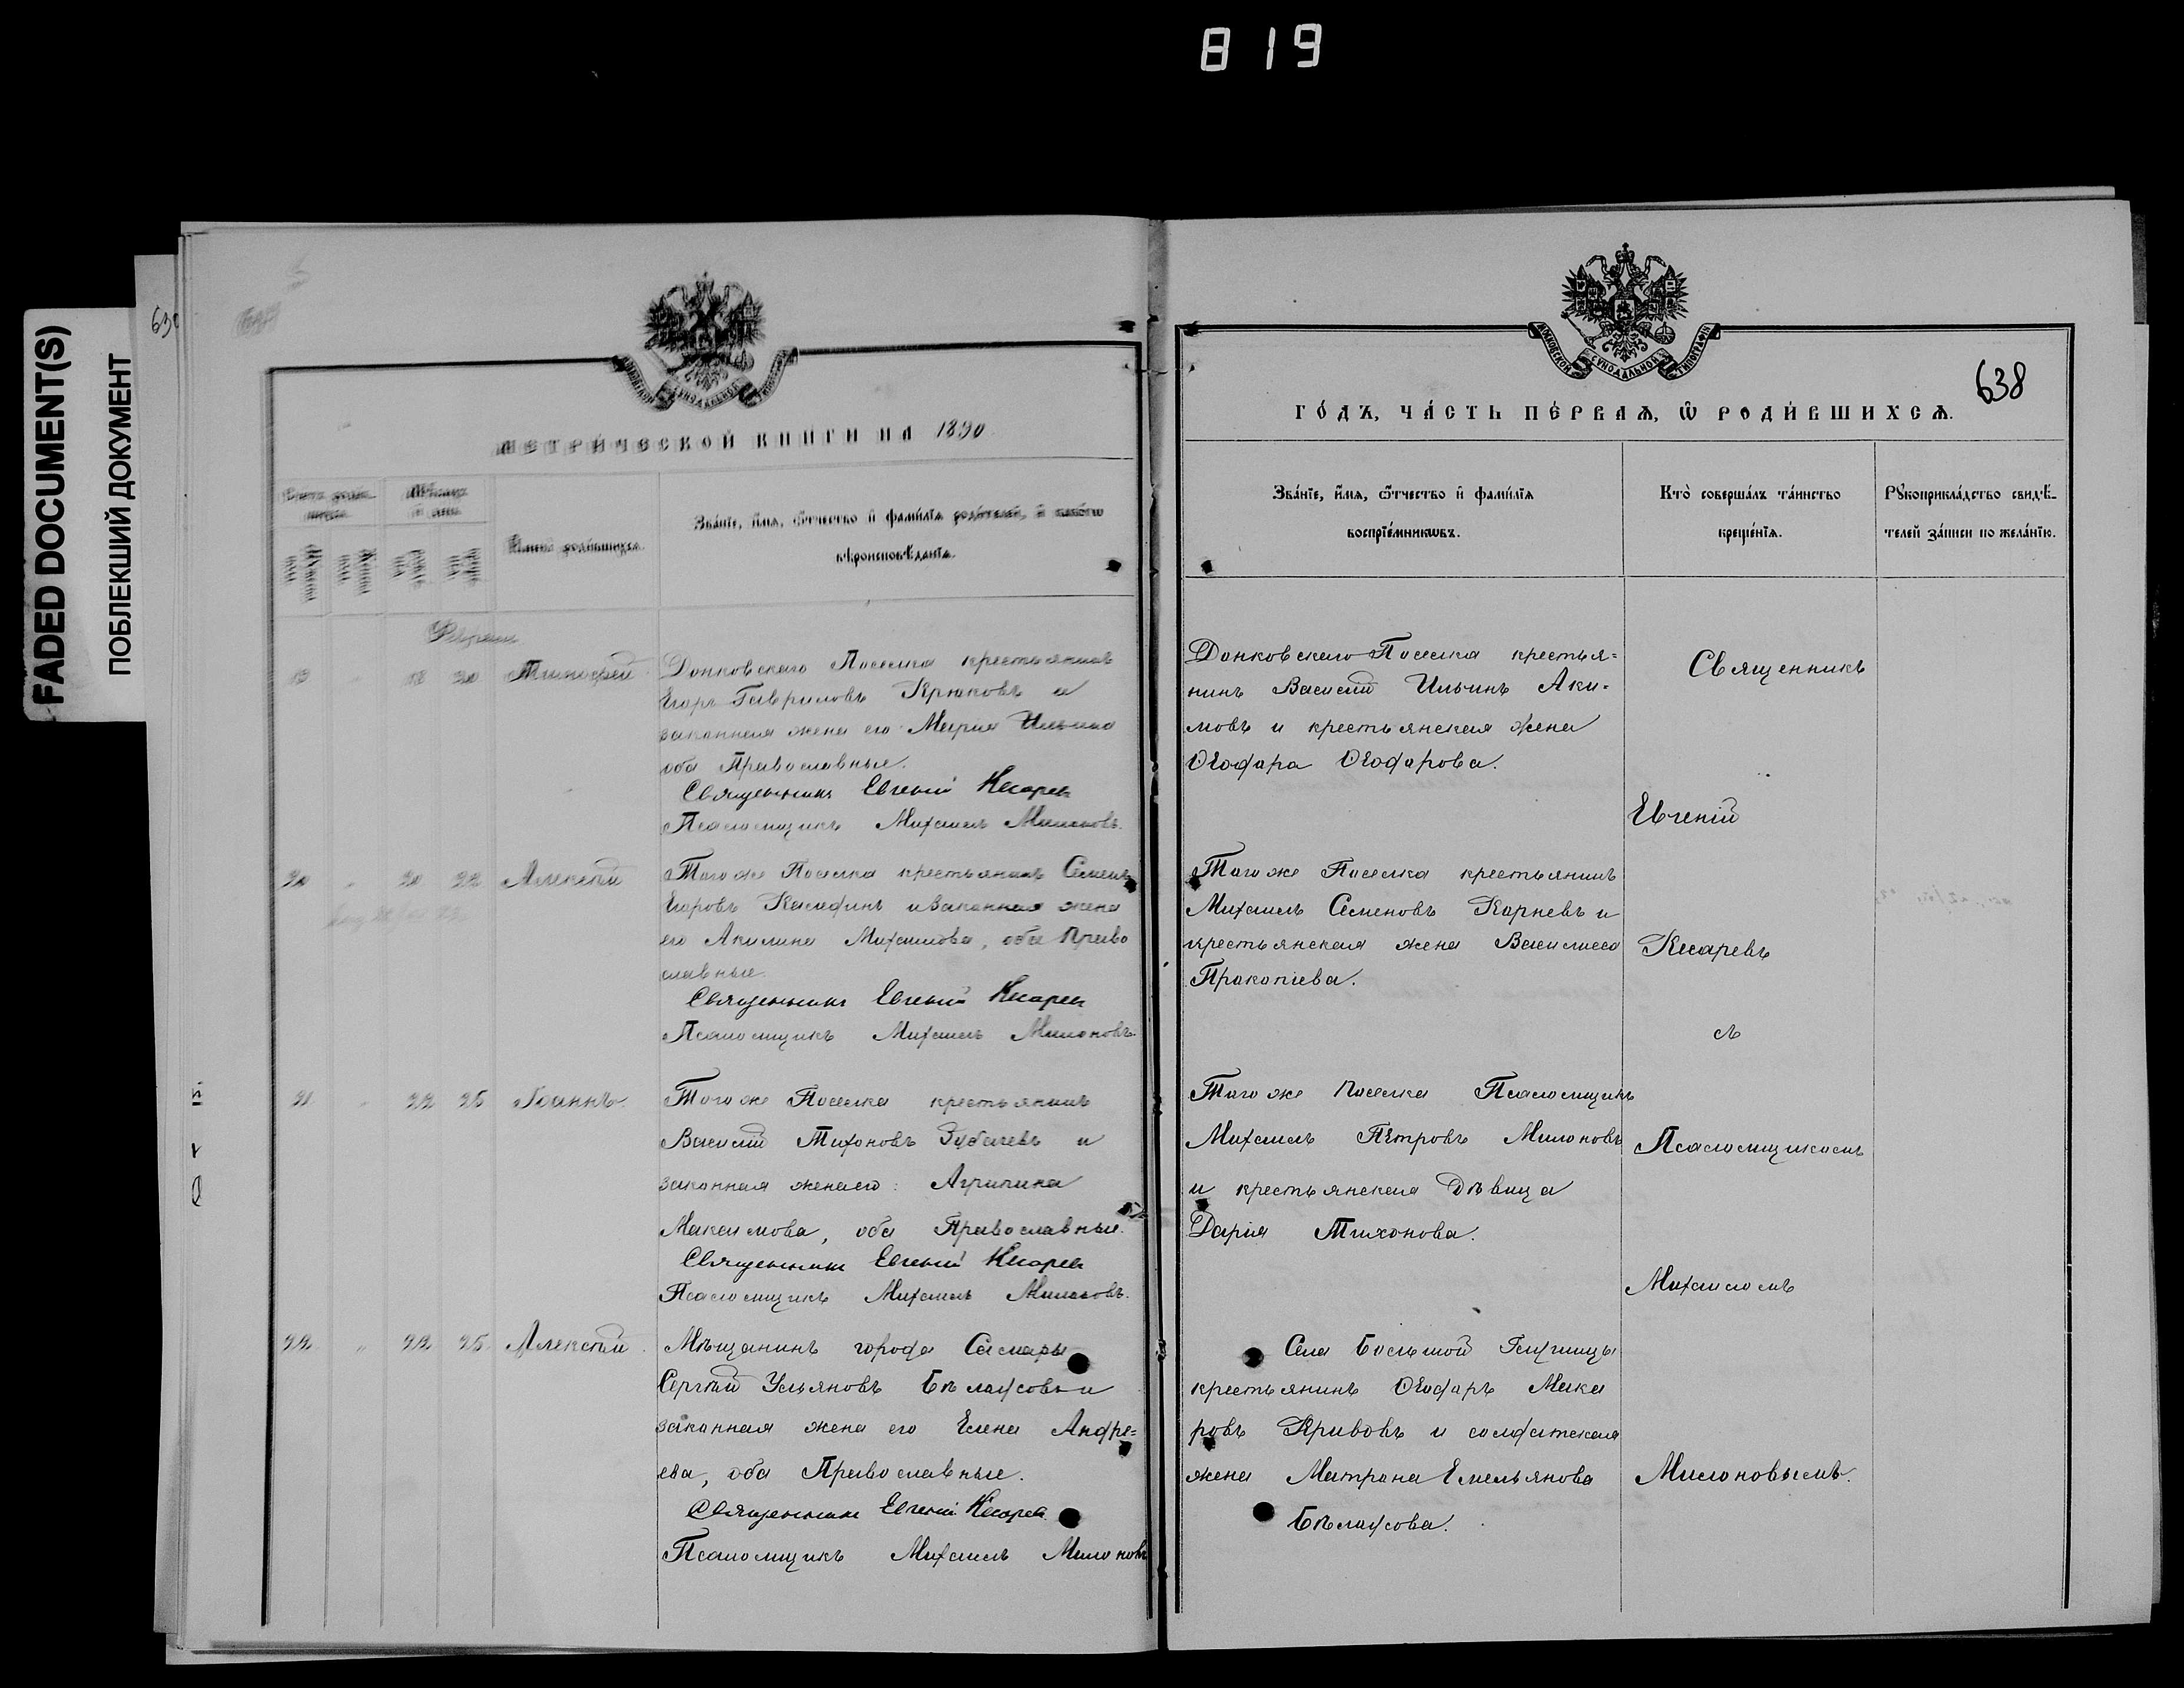 819
FADED DOCUMENT(S)
ПОБЛЕКШИЙ ДОКУМЕНТ
638
МЕТРИ́ЧЕСКОЙ КНИ́ГИ НА 1890
ГО́ДЪ, ЧА́СТЬ ПЕ́РВАѦ, Ѡ҆ РОДИ́ВШИХСѦ.
МОСКОВСКОЙ СѴНОДАЛЬНОЙ ТИПОГРАФІИ
Имена̀ роди́вшихсѧ.
Зва́нїе, и҆́мѧ, ѻ҆́тчество и҆ фамѝлїѧ роди́телей, и҆ како́гѡ
вѣроисповѣ́данїѧ.
Зва́нїе, и҆́мѧ, ѻ҆́тчество и҆ фамѝлїѧ
воспрїе́мникѡвъ.
Кто̀ соверша́лъ та́инство
креще́нїѧ.
Рꙋкоприкла́дство свидѣ́-
телей за́писи по жела́нїю.
Февраль
19 " 18 20 Тимофей
Донковскаго Поселка крестьянинъ
Егоръ Гавриловъ Крюковъ и
законная жена его Марія Ильина
оба Православные.
Священникъ Евгеній Кесарев
Псаломщикъ Михаилъ Милоновъ.
Донковскаго Поселка крестья=
нинъ Василій Ильинъ Аки-
мовъ и крестьянская жена
Ѳеодора Ѳеодорова.
20 " 20 22 Алексѣй
Того же Поселка крестьянинъ Семенъ
Егоровъ и законная жена
его Акилина Михаилова, оба Право
славные.
Священникъ Евгеній Кесарев
Псаломщикъ Михаилъ Милоновъ.
Того же Поселка крестьянинъ
Михаилъ Семеновъ Корневъ и
крестьянская жена Василиса
Прокопіева.
21 " 22 25 Іоаннъ
Того же Поселка крестьянинъ
Василій Тихоновъ Зубачевъ и
законная жена его Агрипина
Максимова, оба Православные.
Священникъ Евгеній Кесарев
Псаломщикъ Михаилъ Милоновъ.
Того же Поселка Псаломщикъ
Михаилъ Петровъ Милоновъ
и крестьянская Дѣвица
Дарія Тихонова.
22 " 22 25 Алексѣй
Мѣщанинъ города Самары
Сергѣй Ульяновъ Бѣлоусовъ и
законная жена его Елена Андре=
ева, оба Православные.
Священникъ Евгеній Кесарев
Псаломщикъ Михаилъ Милоновъ
Села Большой Глушицы
крестьянинъ Ѳеодоръ Мака
ровъ Кривовъ и солдатская
жена Матрона Емельянова
Бѣлоусова.
Священникъ
Евгеній
Кесаревъ
съ
Псаломщикомъ
Михаиломъ
Милоновымъ.